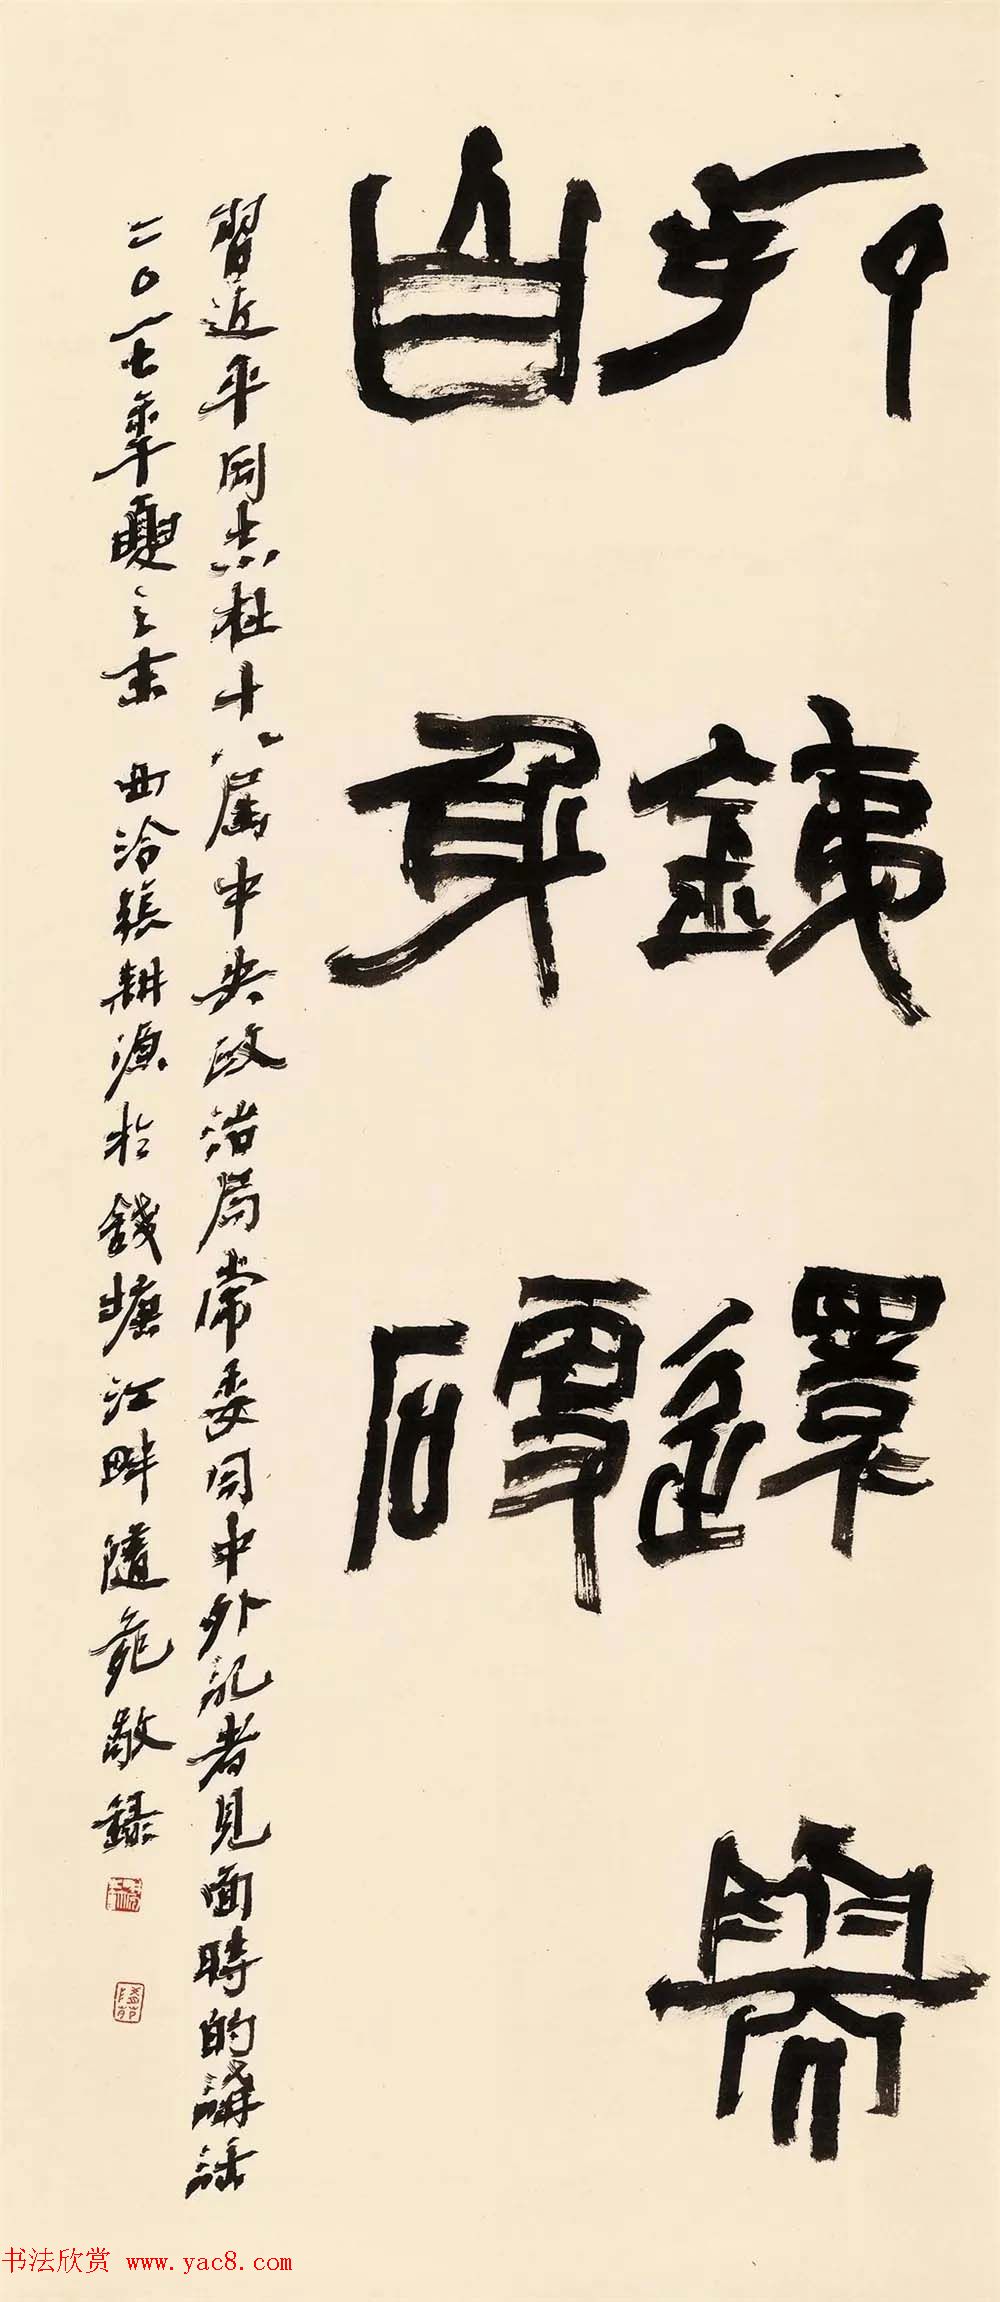 打銕還需
自身硬
習近平同志在十八届中央政治局常委同中外記者見面時的講話
二〇一七年夏之末 西泠張耕源於錢塘江畔隨苑敬錄
书法欣赏 www.yac8.com